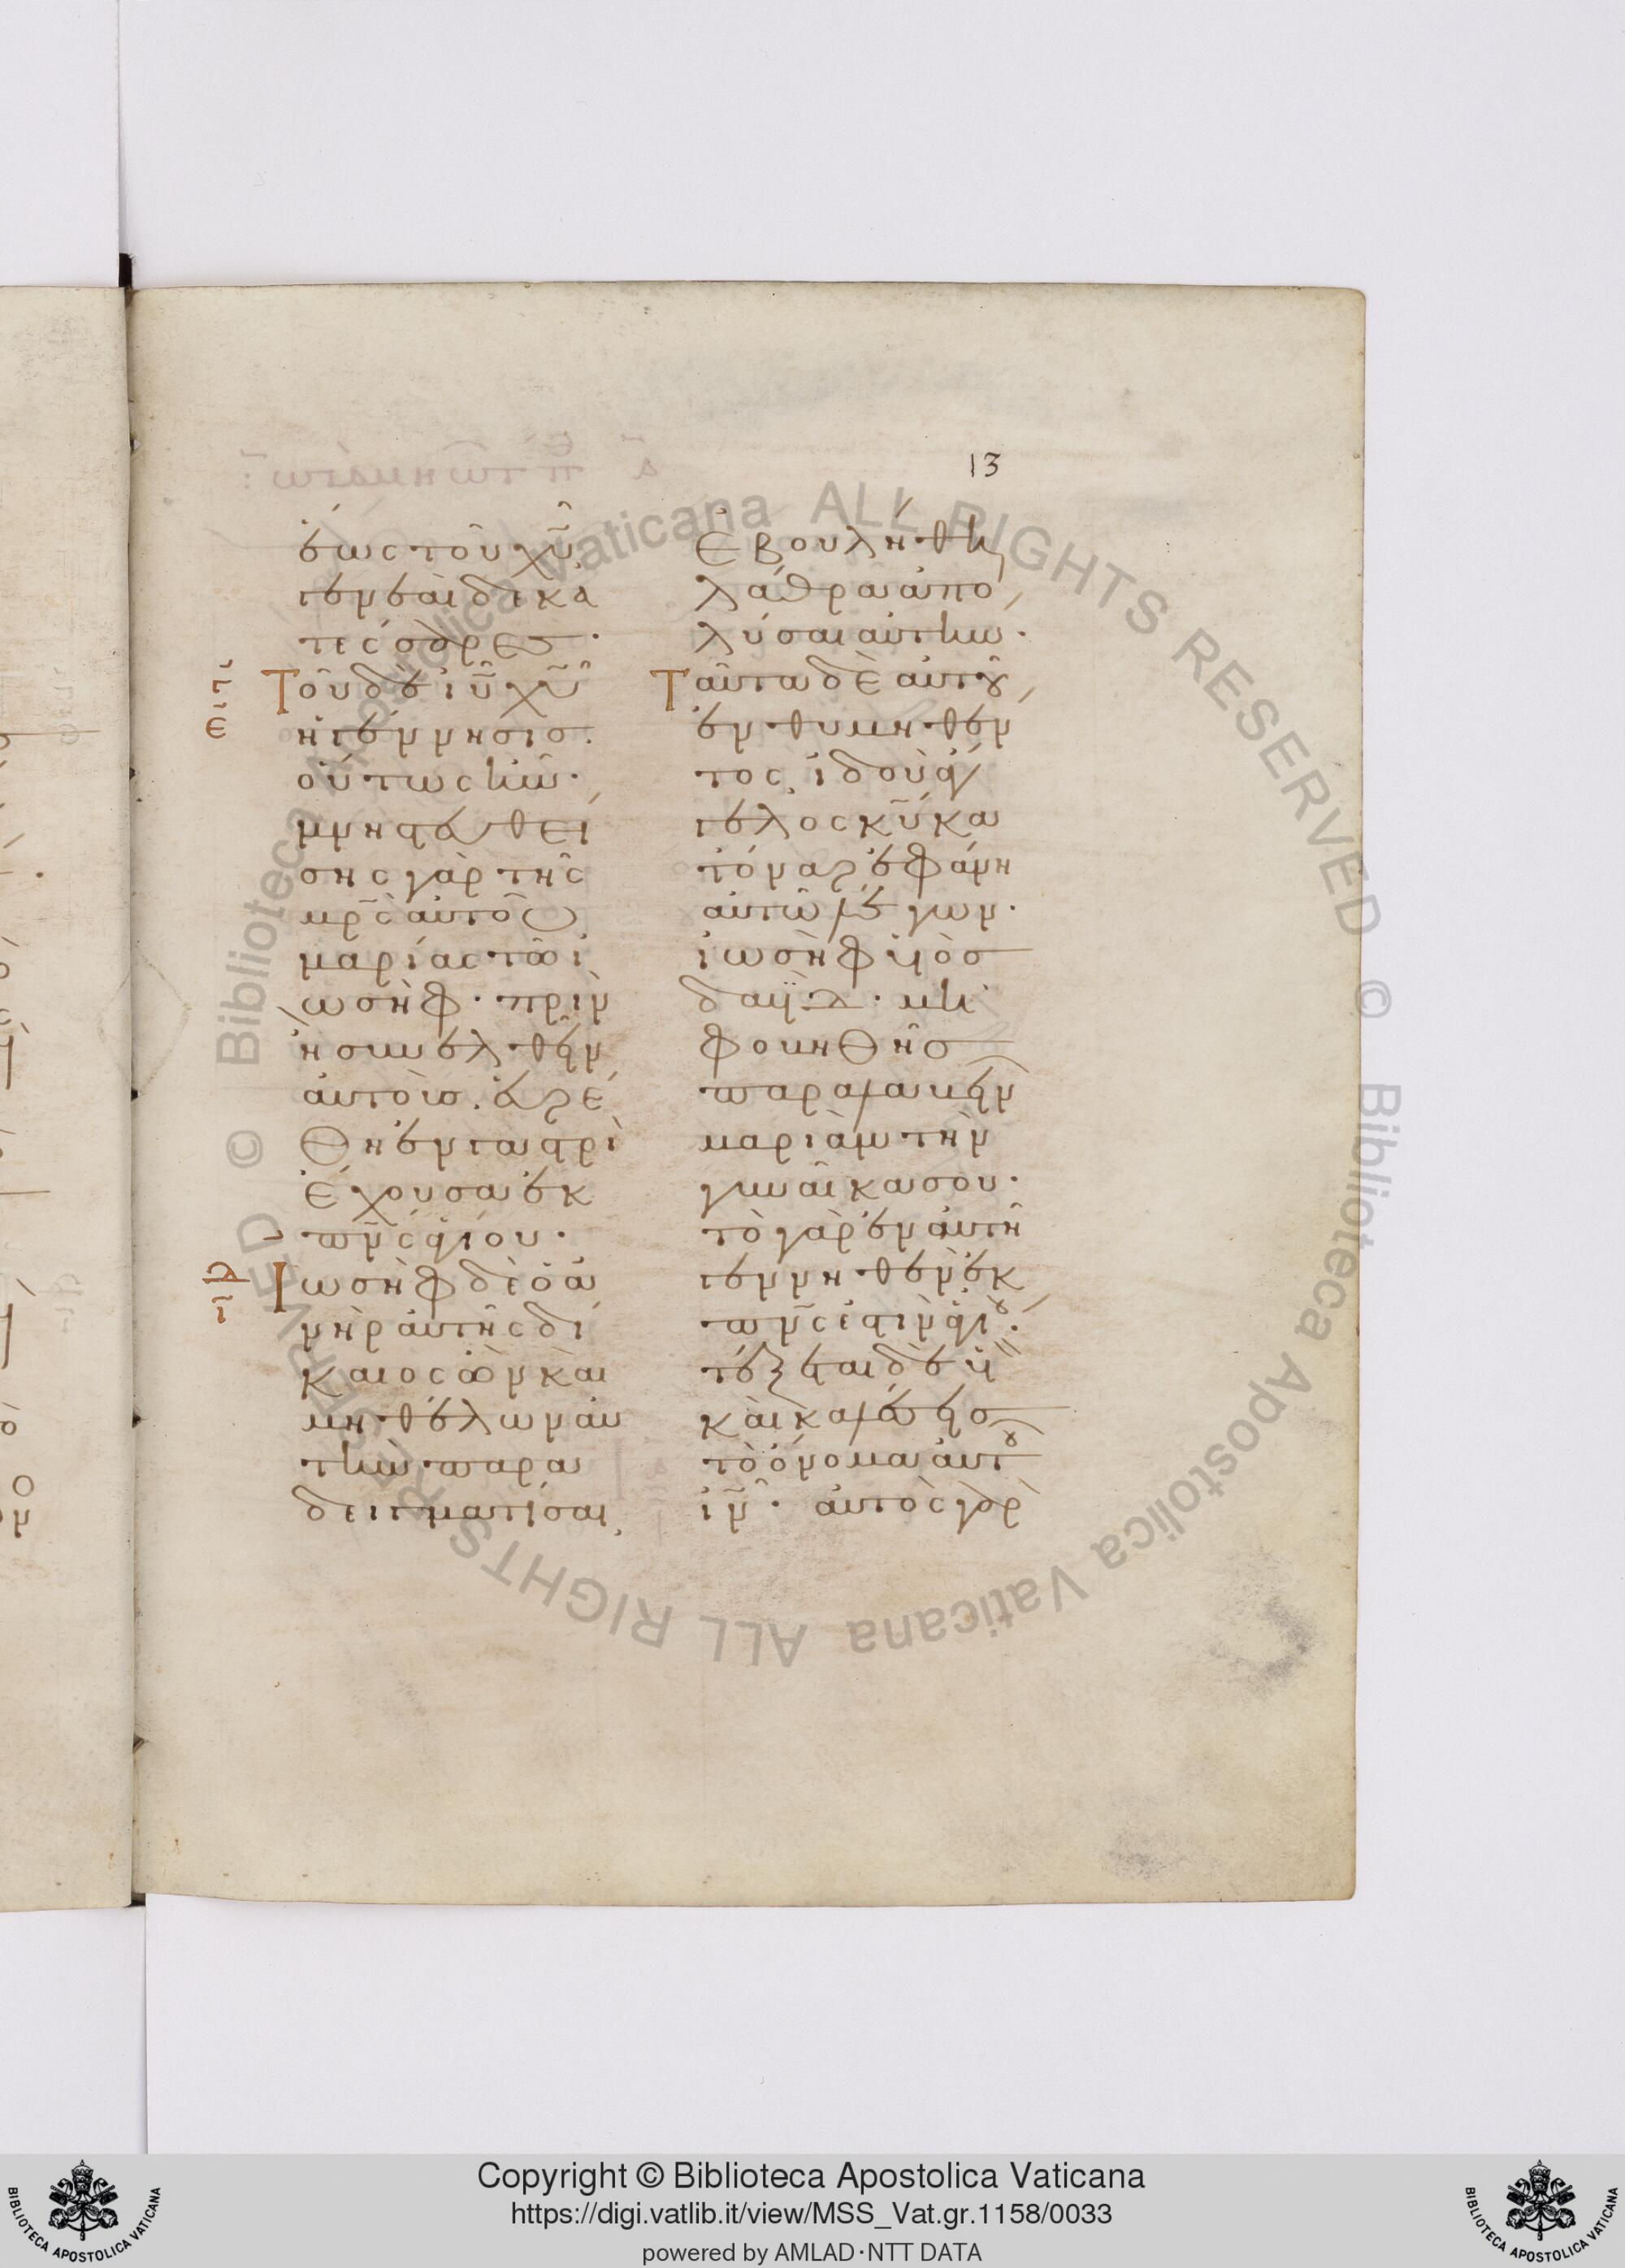 13
ἕως τοῦ χυ̅
γενεαὶ δεκα
τέσσαρες·
γ̅
ε̅
Τοῦ δὲ ιυ̅ χυ̅
ἡ γέννησις
οὕτως ἦν·
μνηστευθεί
σης γὰρ τῆς
μρ̅ς αὐτοῦ
μαρίας τῶ ἰ
ωσὴφ· πρὶν
ἢ συνελθεῖν
αὐτοὺς. εὑρέ
θη ἐν γαστρὶ
ἔχουσα ἐκ
πν̅ς ἁγίου·
ι̅
Ἰωσὴφ δὲ ὁ ἀ
νὴρ αὐτῆς δί
καιος ὢν καὶ
μὴ θέλων αὐ
τὴν παρα
δειγματίσαι,
Ἐβουλήθη
λάθρα ἀπο
λύσαι αὐτήν·
Ταῦτα δὲ αὐτοῦ
ἐνθυμηθέν
τος, ἰδοὺ ἄγ
γελος κυ̅ κα
τόναρ ἐφάνη
αὐτῶ λέγων·
ἰωσὴφ υἱὸς
δαδ̅· μὴ
φοβηθῆς
παραλαβεῖν
μαριὰμ τὴν
γυναῖκα σου·
τὸ γὰρ ἐν αὐτῆ
γεννηθὲν ἐκ
πν̅ς ἐστιν ἁγίου·
τέξεται δὲ υἱὸν
καὶ καλέσεις
τὸ ὄνομα αὐτοῦ
ιν̅· αὐτὸς γὰρ
Copyright © Biblioteca Apostolica Vaticana
https://digi.vatlib.it/view/MSS_Vat.gr.1158/0033
powered by AMLAD·NTT DATA
BIBLIOTECA APOSTOLICA VATICANA
BIBLIOTECA APOSTOLICA VATICANA
© Biblioteca Apostolica Vaticana ALL RIGHTS RESERVED © Biblioteca Apostolica Vaticana ALL RIGHTS RESERVED